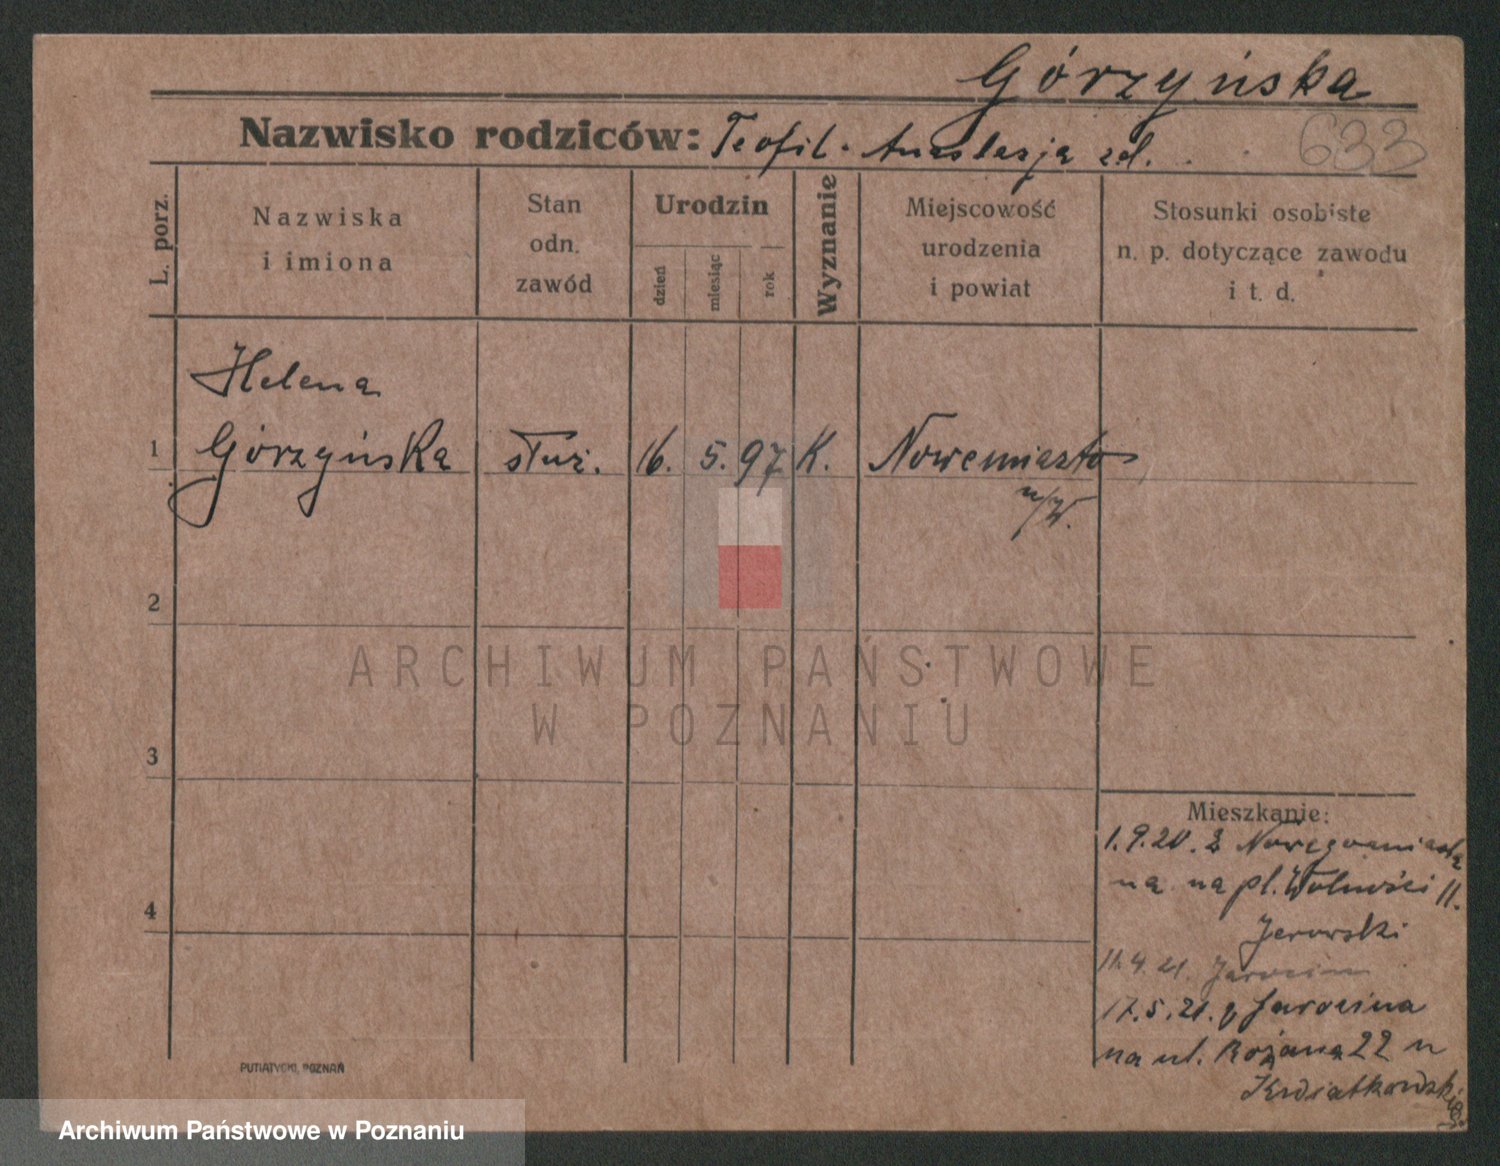 Górzyńska
633
Nazwisko rodziców: Teofil - Anastazja zd.
L. porz.
Nazwiska
i imiona
Stan
odn.
zawód
Urodzin
dzień
miesiąc
rok
Wyznanie
Miejscowość
urodzenia
i powiat
Stosunki osobiste
n. p. dotyczące zawodu
i t. d.
Helena
1 Górzyńska służ. 16. 5. 97 K. Nowemiasto
n/W.
2
3
4
ARCHIWUM PAŃSTWOWE
W POZNANIU
Mieszkanie:
1.9.20. z Nowegomiasta
na pl. Wolności 11.
11.4.21. Jarocin
17.5.21. z Jarocina
na ul. Różana 22 u
Kwiatkowskiej
PUTIATYCKI, POZNAŃ
Archiwum Państwowe w Poznaniu